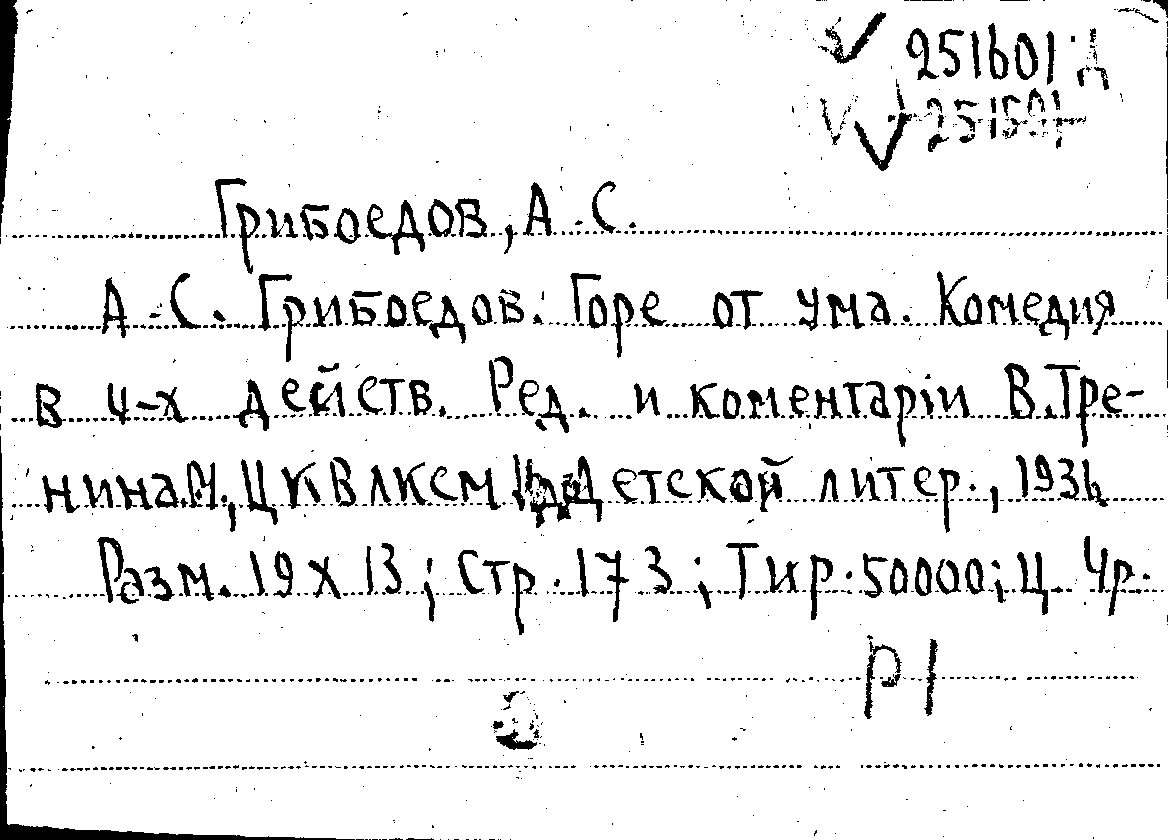 251601 Д
251591
Грибоедов, А.С.
А.С. Грибоедов. Горе от ума. Комедия
в 4-х действ. Ред. и коментаріи В.Тре-
нина.М., ЦК ВЛКСМ Изд Детской литер., 1936
Разм. 19 х 13; Стр. 173; Тир. 50000; Ц. 4р.
р 1